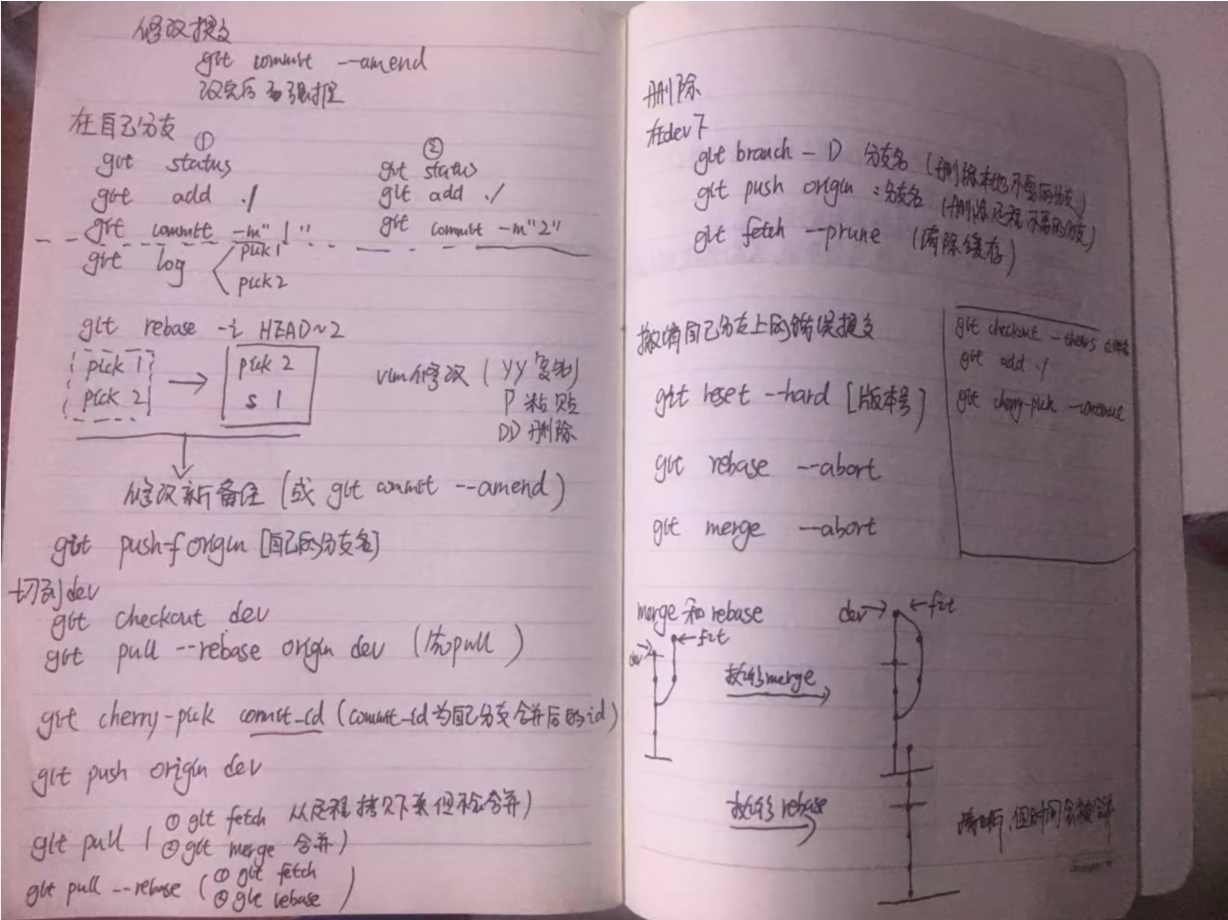 修改提交
git commit --amend
改完后 强推
在自己分支
①
git status
git add ./
git commit -m"1"
②
git status
git add ./
git commit -m"2"
git log
pick 1
pick 2
git rebase -i HEAD~2
pick 1
pick 2
pick 2
s 1
vim修改 (YY 复制)
P 粘贴
DD 删除
修改新备注 (或 git commit --amend)
git push -f origin [自己的分支名]
切到dev
git checkout dev
git pull --rebase origin dev (先pull)
git cherry-pick commit_id (commit_id 为自己分支合并后的id)
git push origin dev
git pull (① git fetch 从远程拷贝下来但不会合并)
② git merge 合并)
git pull --rebase (① git fetch
② git rebase)
删除
在dev下
git branch -D 分支名 (删除本地不要的分支)
git push origin :分支名 (删除远程不要的分支)
git fetch --prune (清除缓存)
撤销自己分支上的错误提交
git reset --hard [版本号]
git rebase --abort
git merge --abort
git checkout --theirs
git add ./
git cherry-pick --continue
merge 和 rebase
dev
fzt
执行merge
dev
fzt
执行rebase
清晰,但时间会被